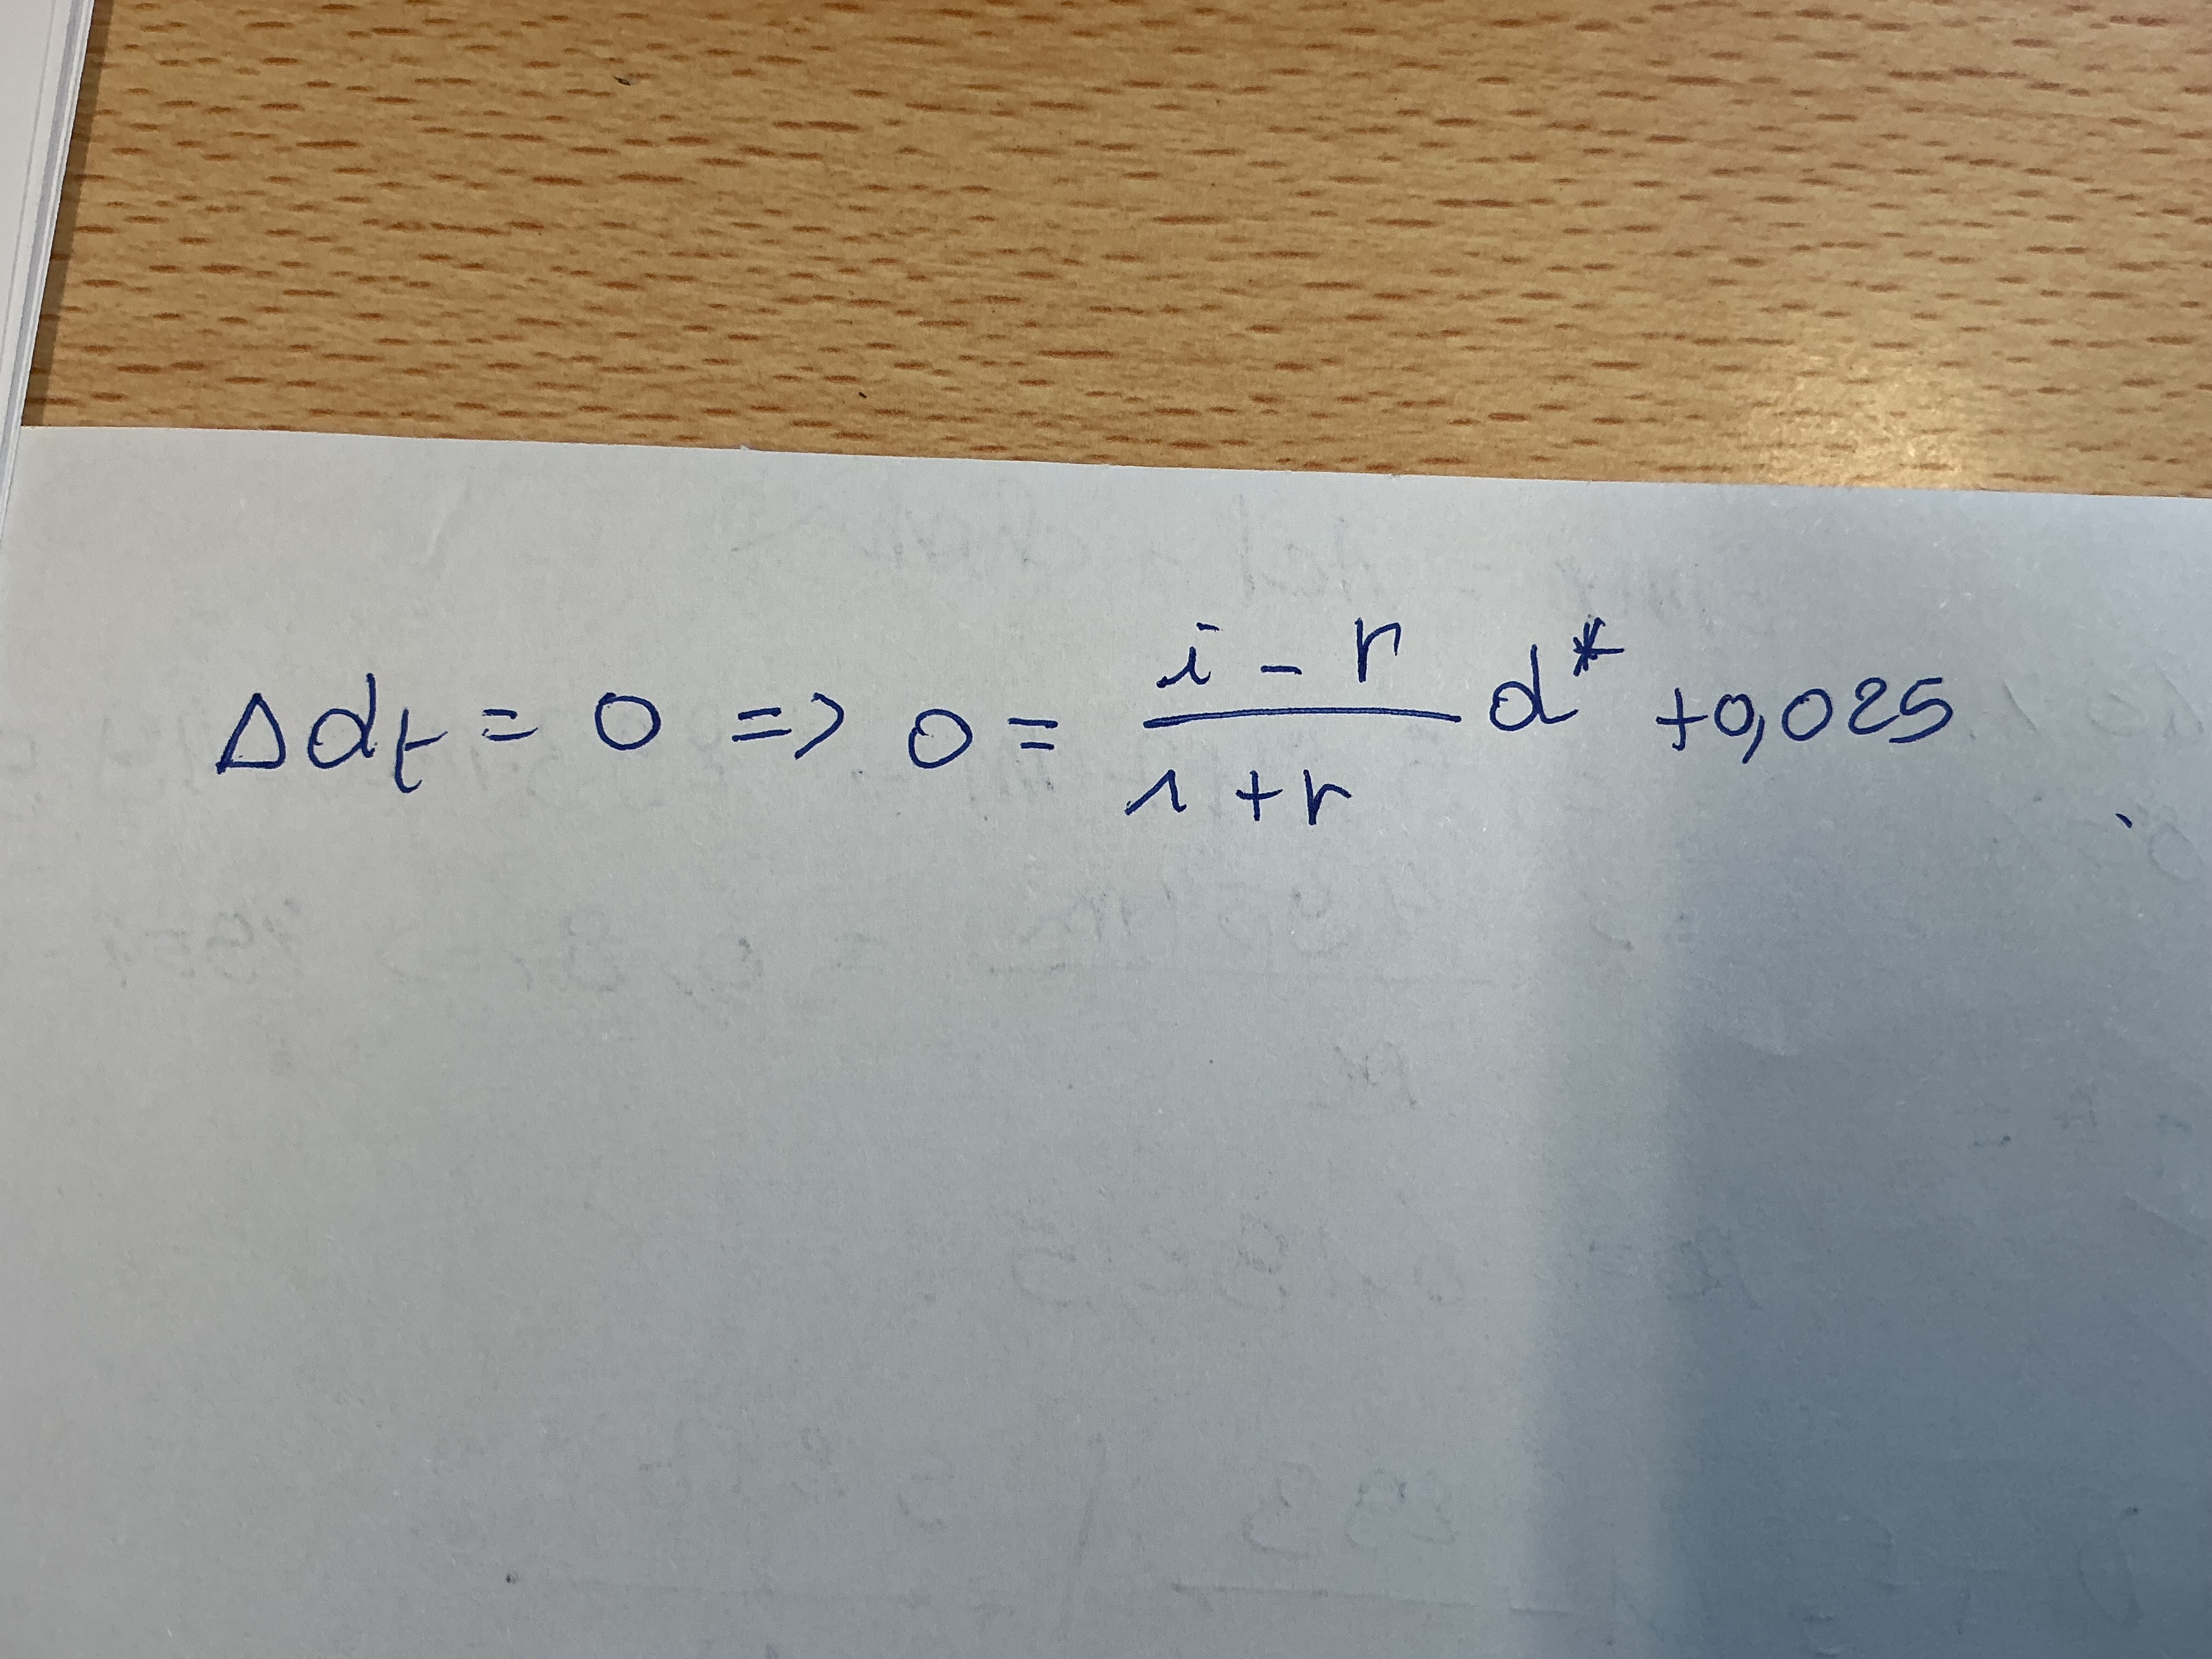 Δdt = 0 => 0 = (i - r)/(1 + r) d* + 0,025